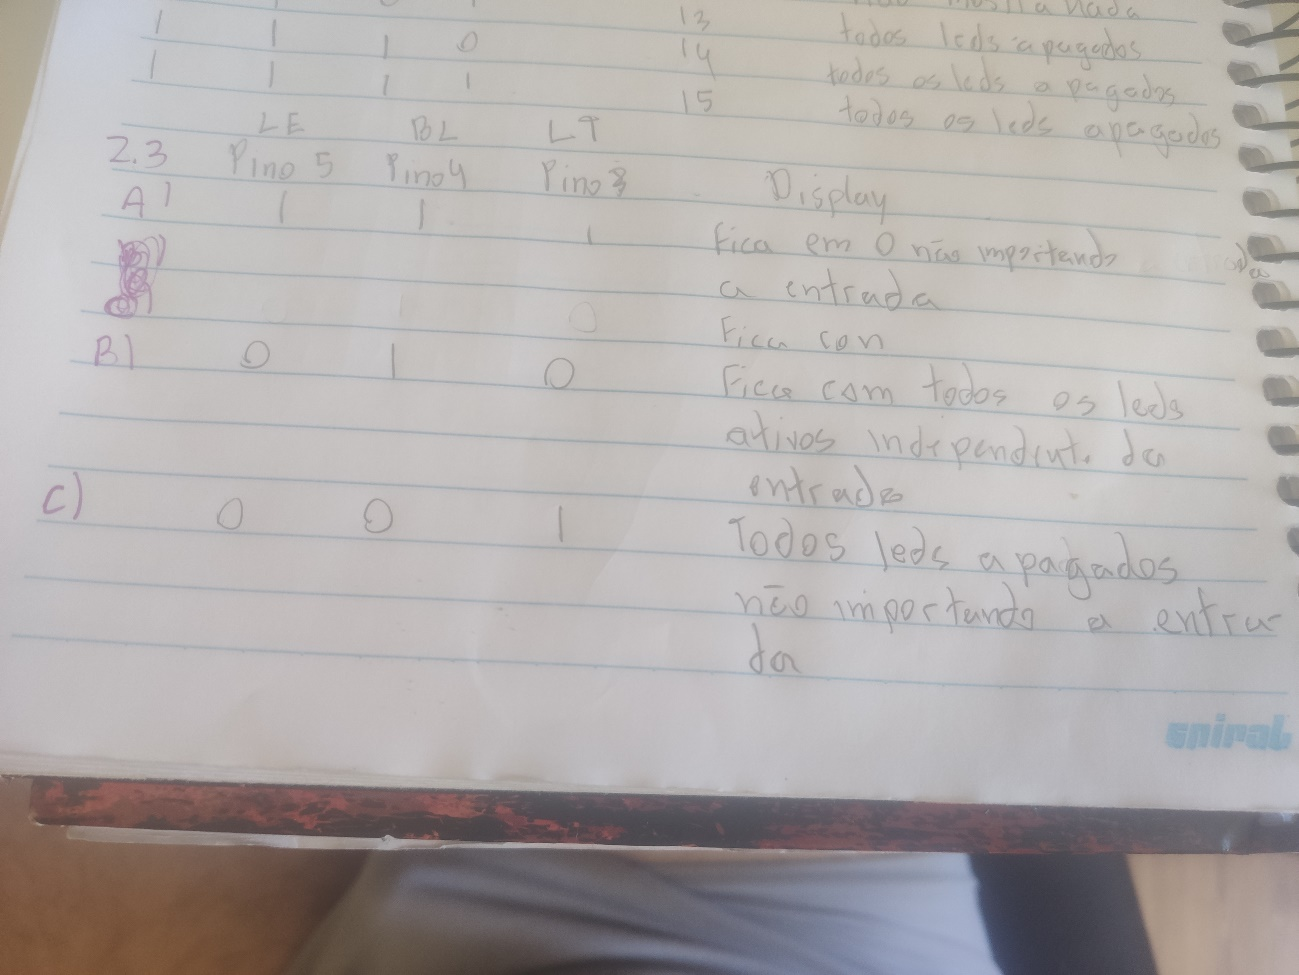 mostra nada
1 1 13 todos leds apagados
1 1 1 0 14 todos os leds apagados
1 1 1 1 15 todos os leds apagados
LE BL LT
2.3 Pino 5 Pino 4 Pino 3 Display
A) 1 1 1 Fica em 0 não importando
a entrada
0 Fica con
B) 0 1 0 Fica com todos os leds
ativos independent. da
entrada
C) 0 0 1 Todos leds apagados
não importando a entra
da
spiral